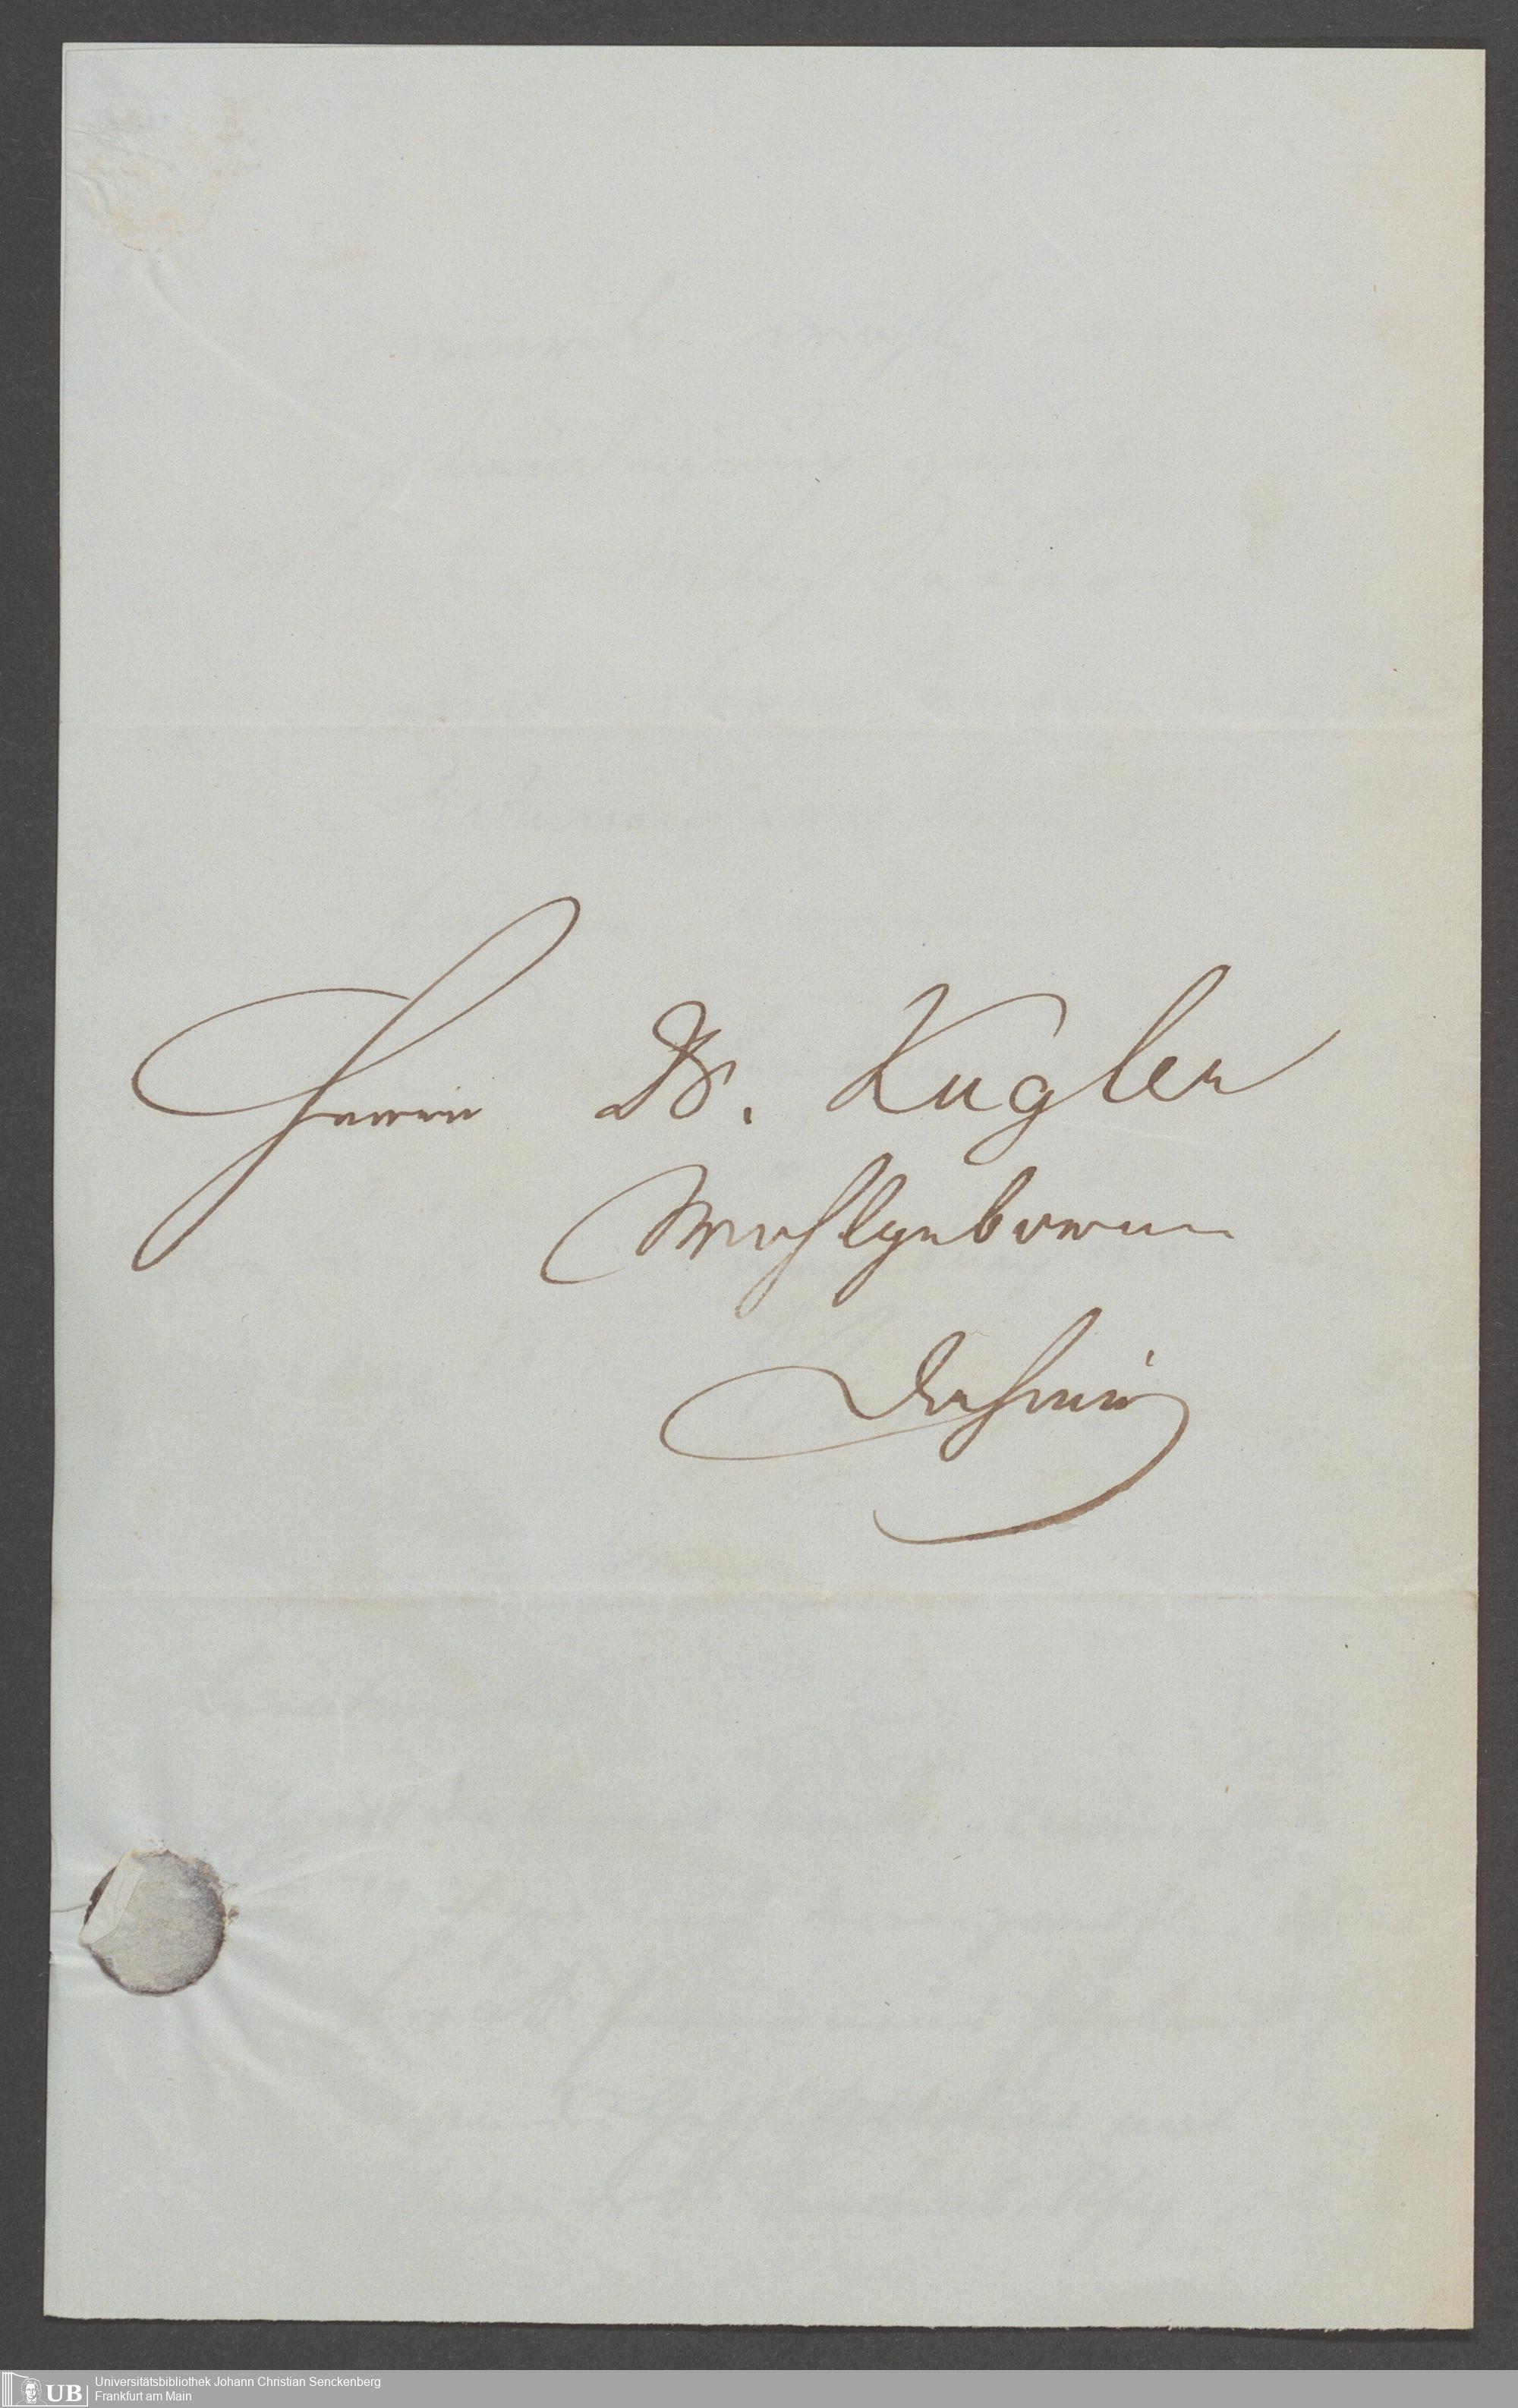 Herrn Dr. Kugler
Wohlgeboren
Dahier
UB
Universitätsbibliothek Johann Christian Senckenberg
Frankfurt am Main